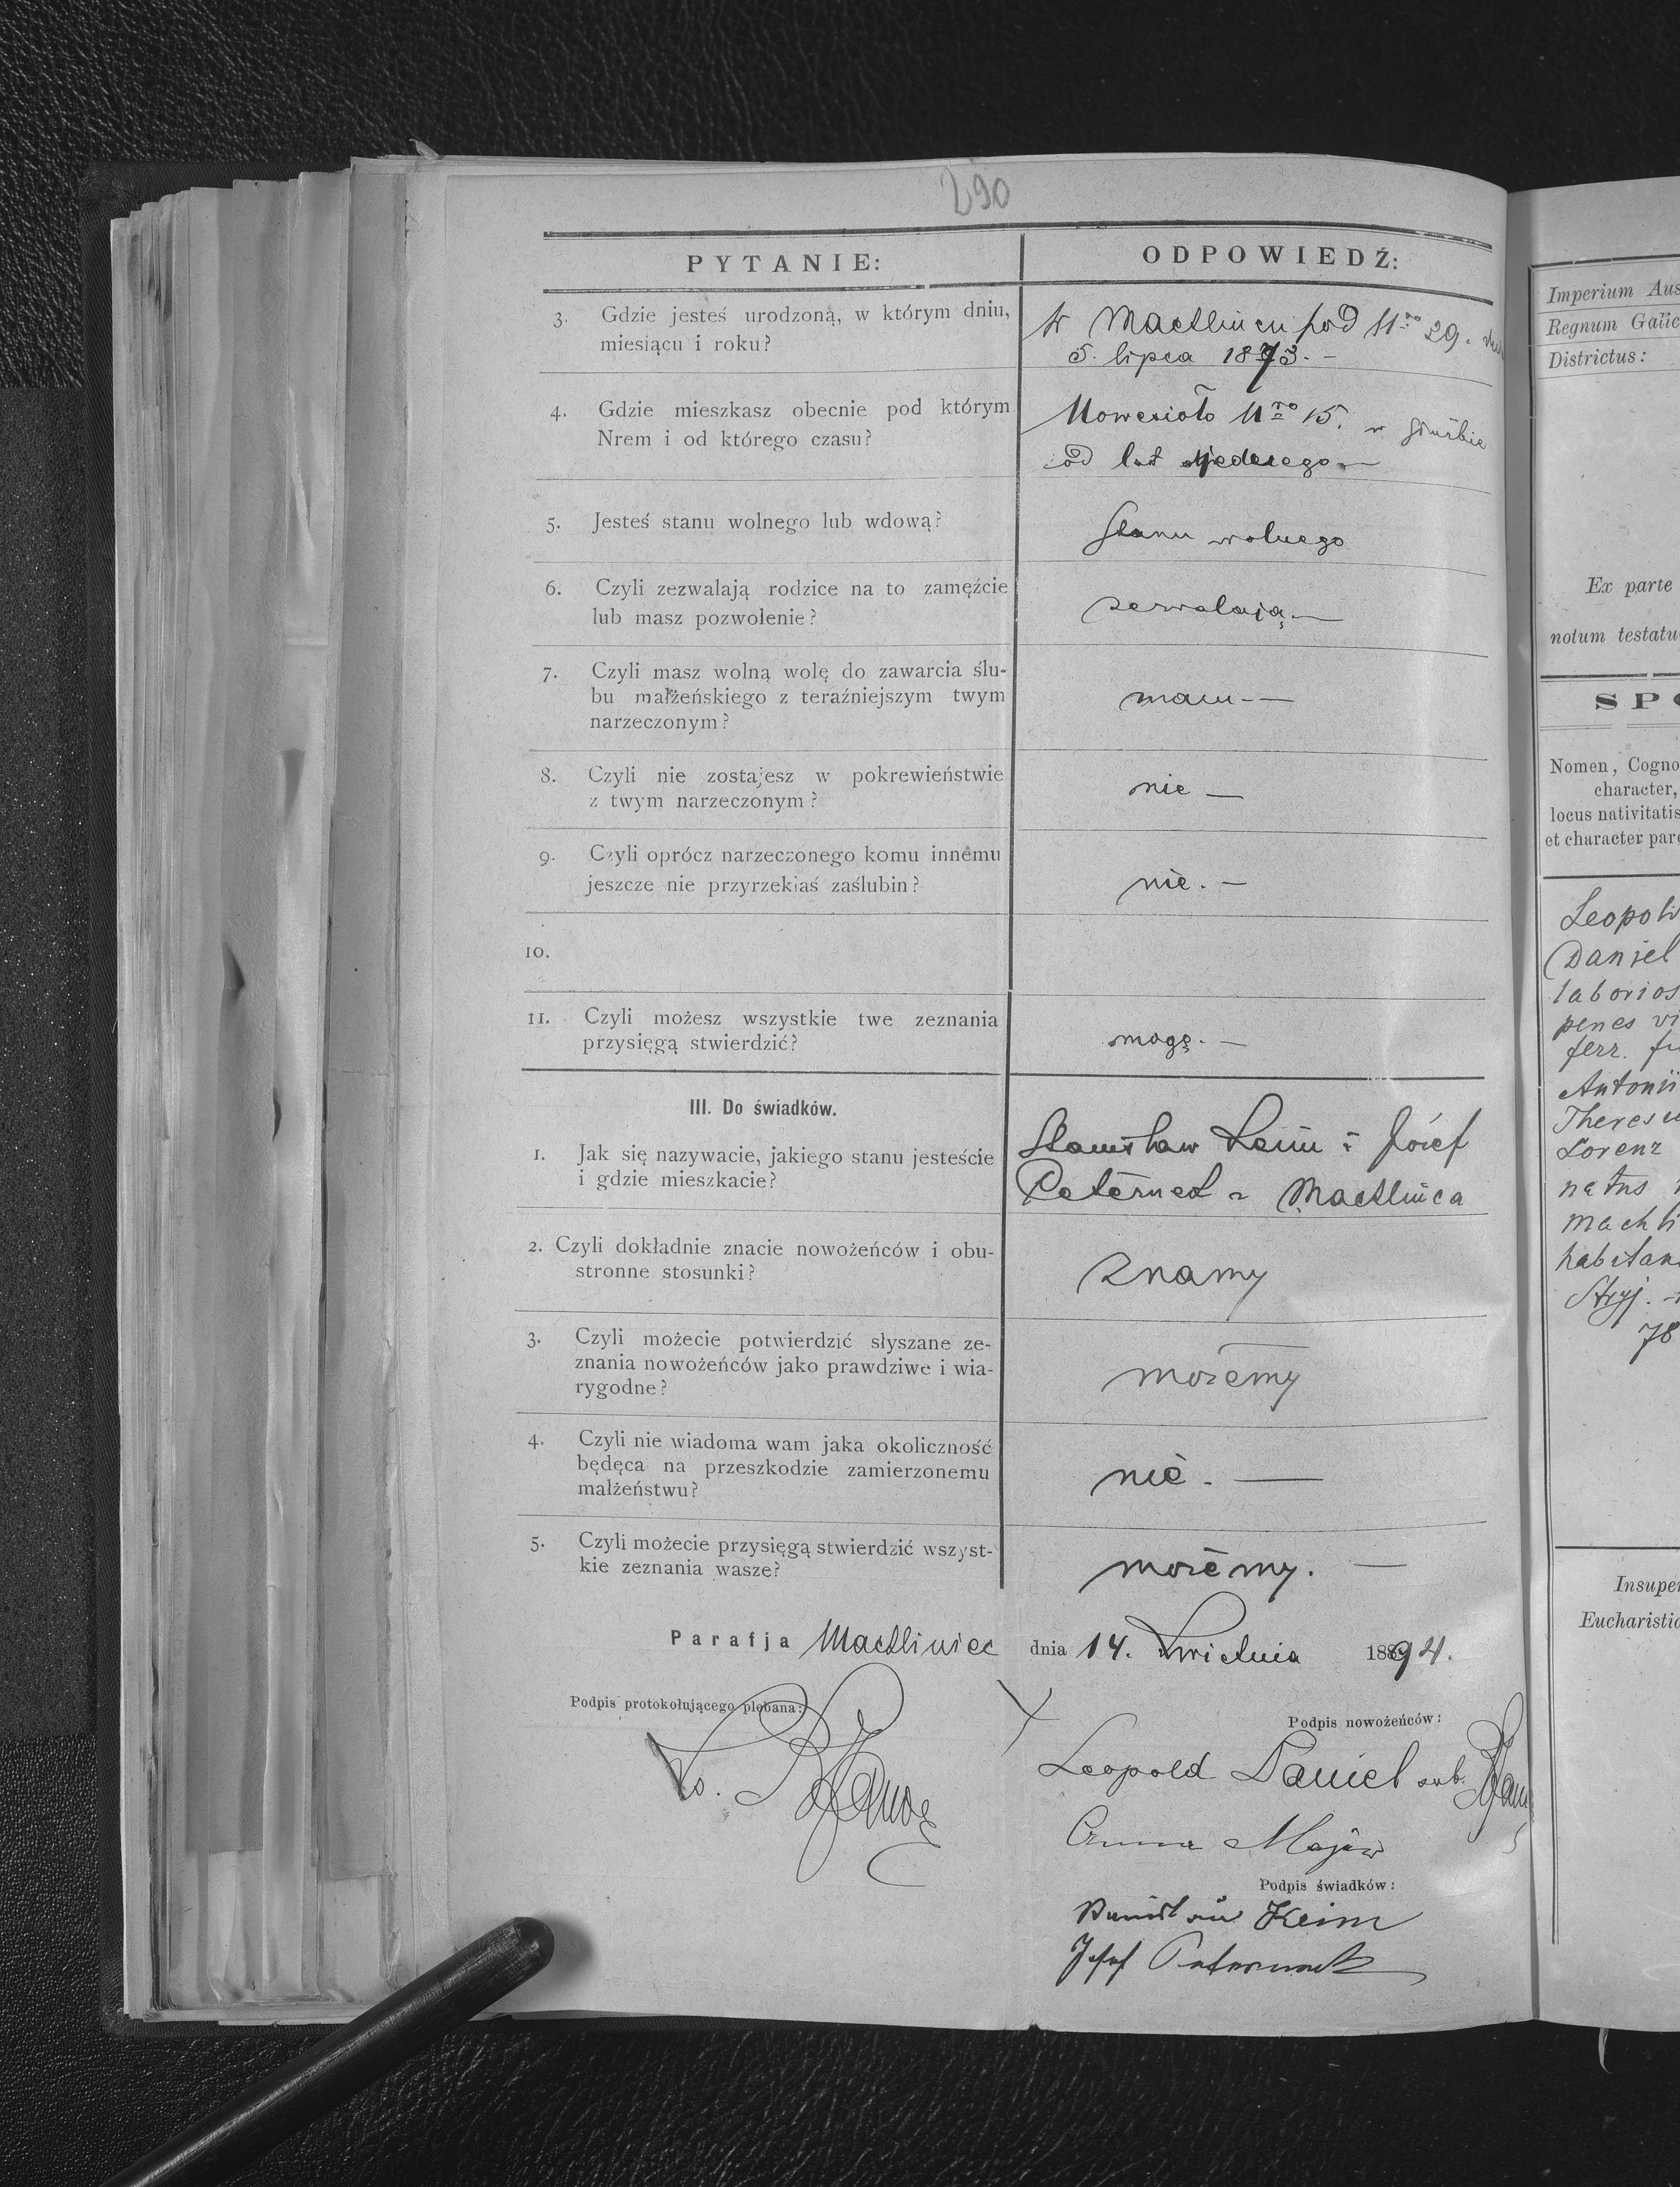 290
PYTANIE:
ODPOWIEDŹ:
3. Gdzie jesteś urodzoną, w którym dniu,
miesiącu i roku?
w Machlincu pod Nro 29.
5. lipca 1873. —
4. Gdzie mieszkasz obecnie pod którym
Nrem i od którego czasu?
Nowesioło Nro 15. w służbie
od lat jednego —
5. Jesteś stanu wolnego lub wdową?
Stanu wolnego
6. Czyli zezwalają rodzice na to zamęźcie
lub masz pozwolenie?
zezwalają —
7. Czyli masz wolną wolę do zawarcia ślu-
bu małżeńskiego z teraźniejszym twym
narzeczonym?
mam —
8. Czyli nie zostajesz w pokrewieństwie
z twym narzeczonym?
nie —
9. Czyli oprócz narzeczonego komu innemu
jeszcze nie przyrzekłaś zaślubin?
nie. —
10.
11. Czyli możesz wszystkie twe zeznania
przysięgą stwierdzić?
mogę. —
III. Do świadków.
1. Jak się nazywacie, jakiego stanu jesteście
i gdzie mieszkacie?
Stanisław Keim i Józef
Peternek z Machlińca
2. Czyli dokładnie znacie nowożeńców i obu-
stronne stosunki?
znamy
3. Czyli możecie potwierdzić słyszane ze-
znania nowożeńców jako prawdziwe i wia-
rygodne?
możemy
4. Czyli nie wiadoma wam jaka okoliczność
będęca na przeszkodzie zamierzonemu
małżeństwu?
nie. —
5. Czyli możecie przysięgą stwierdzić wszyst-
kie zeznania wasze?
możemy. —
Parafja Machliniec dnia 14. Kwietnia 1894.
Podpis protokołującego plebana:
Podpis nowożeńców:
Leopold Daniel
Anna Majów
Podpis świadków:
Keim
Josef
Imperium Aus
Regnum Galic
Districtus:
Ex parte
notum testatu
SPO
Nomen, Cogno
character,
locus nativitatis
et character pare
Leopol
Daniel
laborios
penes vi
ferr. fi
Antonii
Theresi
Lorenz
natus
Machli
habitan
Stryj.
78
Insuper
Eucharistic